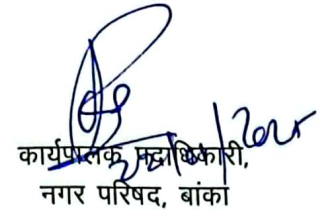 कार्यपालक पदाधिकारी,
नगर परिषद, बांका